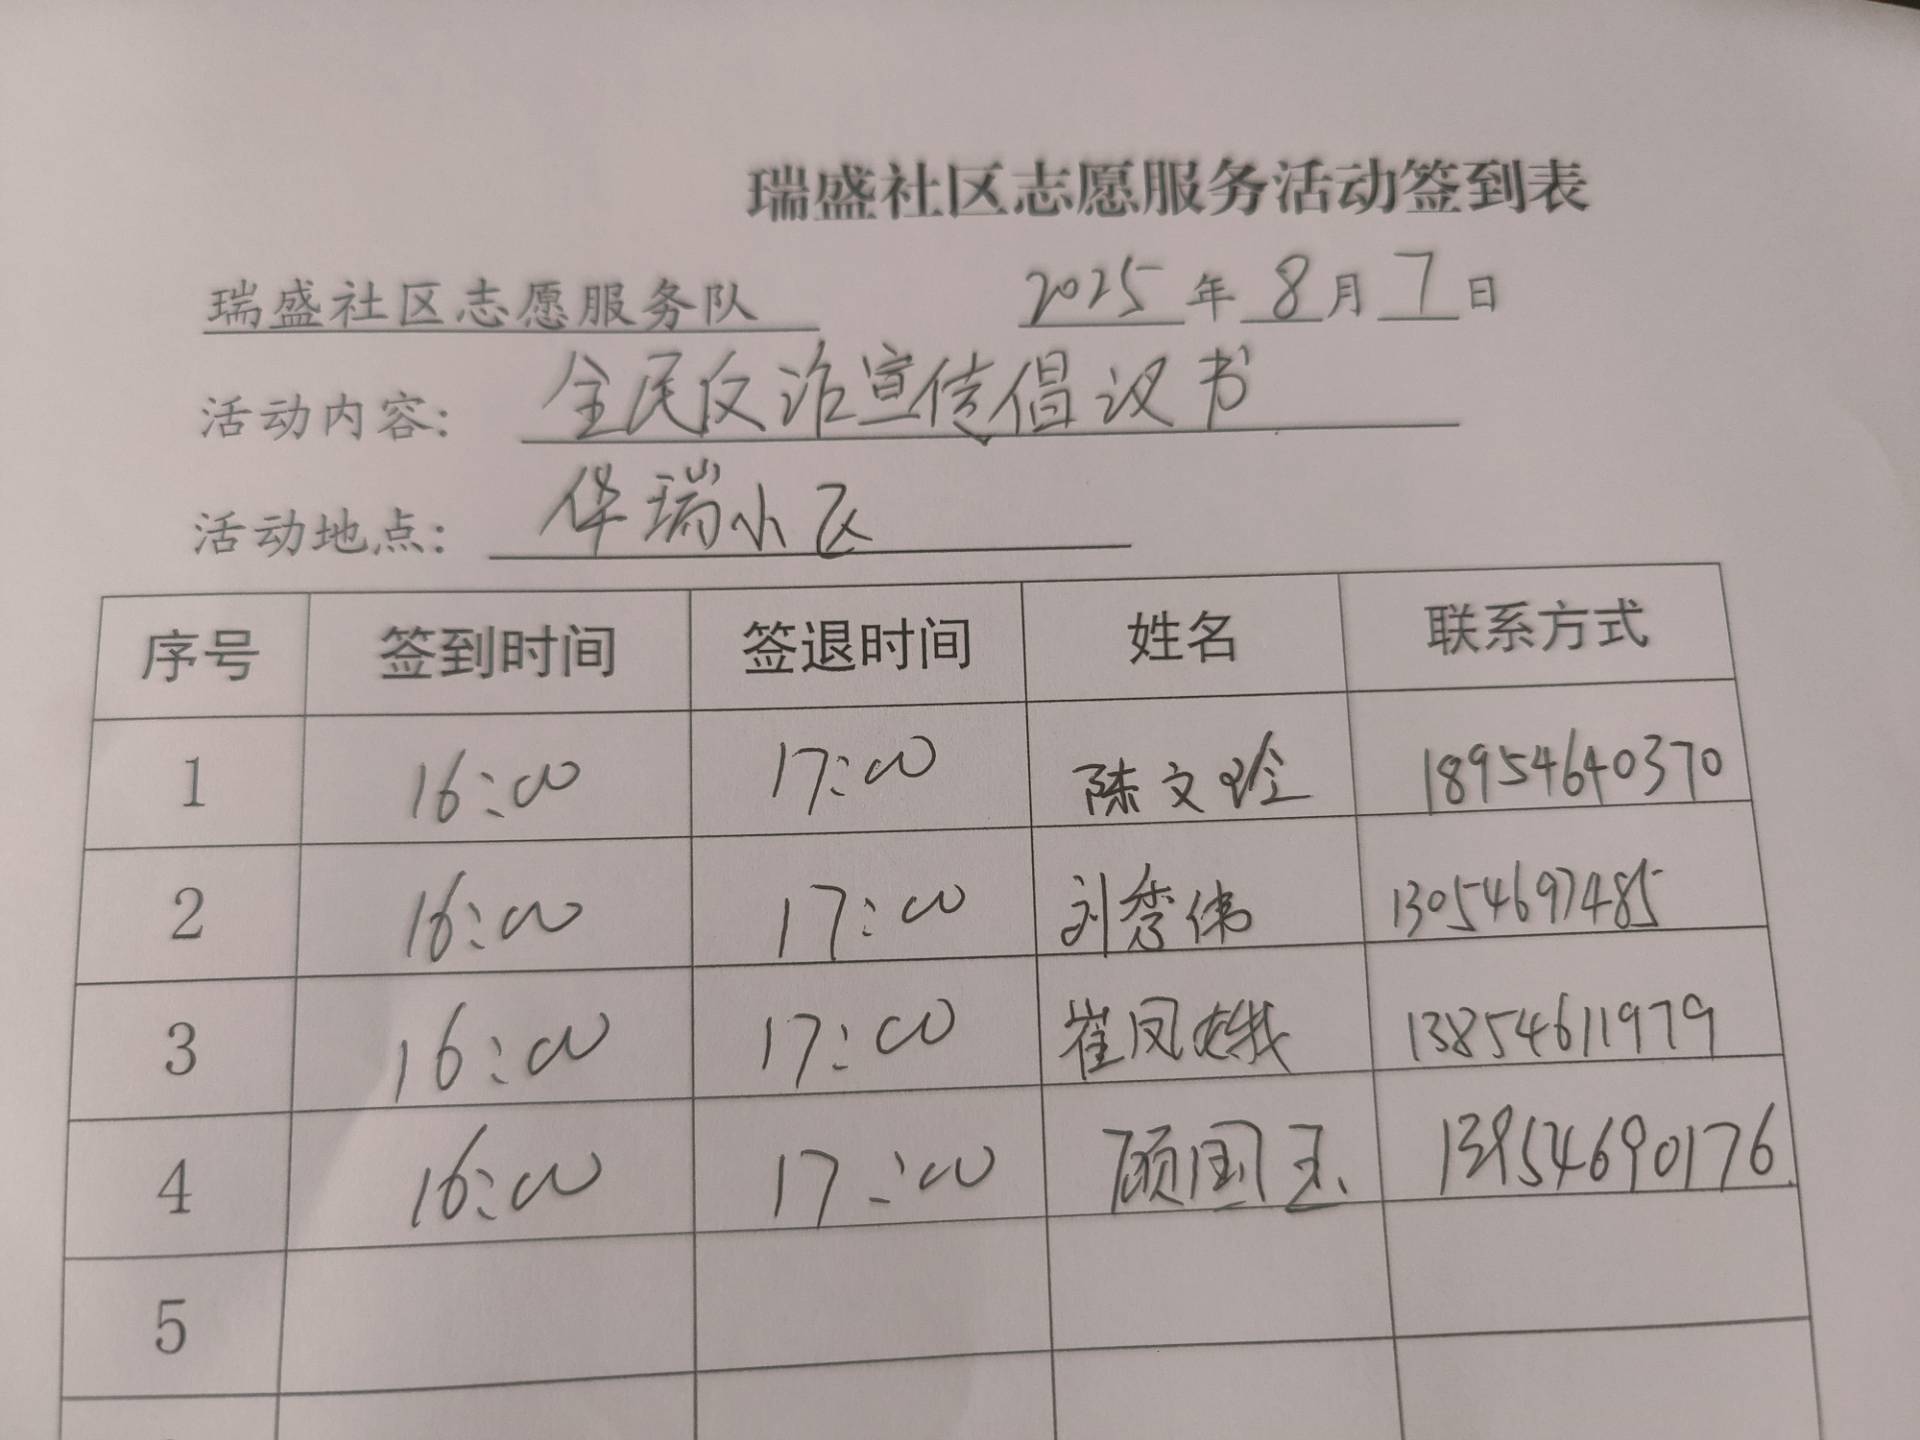 瑞盛社区志愿服务活动签到表
瑞盛社区志愿服务队 2025年8月7日
活动内容: 全民反诈宣传倡议书
活动地点: 华瑞小区
序号 签到时间 签退时间 姓名 联系方式
1 16:00 17:00 陈文玲 18954640370
2 16:00 17:00 刘秀伟 13054697485
3 16:00 17:00 崔凤娥 13854611979
4 16:00 17:00 顾国玉 13954690176
5